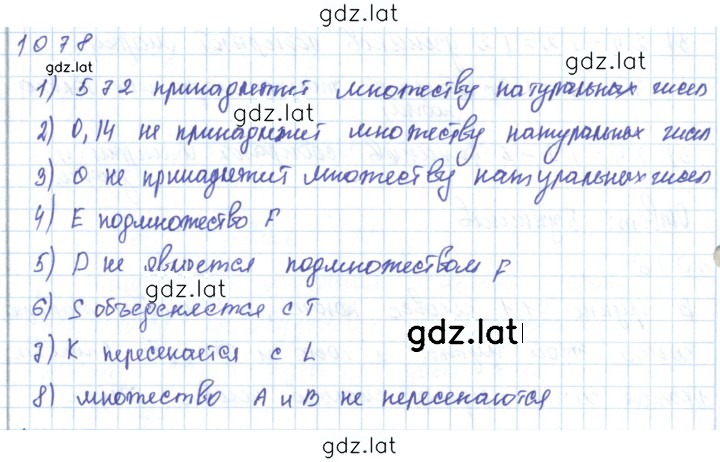 gdz.lat
1078
gdz.lat
1) 572 принадлежит множеству натуральных чисел
gdz.lat
2) 0,14 не принадлежит множеству натуральных чисел
3) 0 не принадлежит множеству натуральных чисел
4) E подмножество F
gdz.lat
5) D не является подмножеством F
gdz.lat
6) S объеденяется с T
gdz.lat
7) K пересекается с L
8) множество A и B не пересекаются
gdz.lat